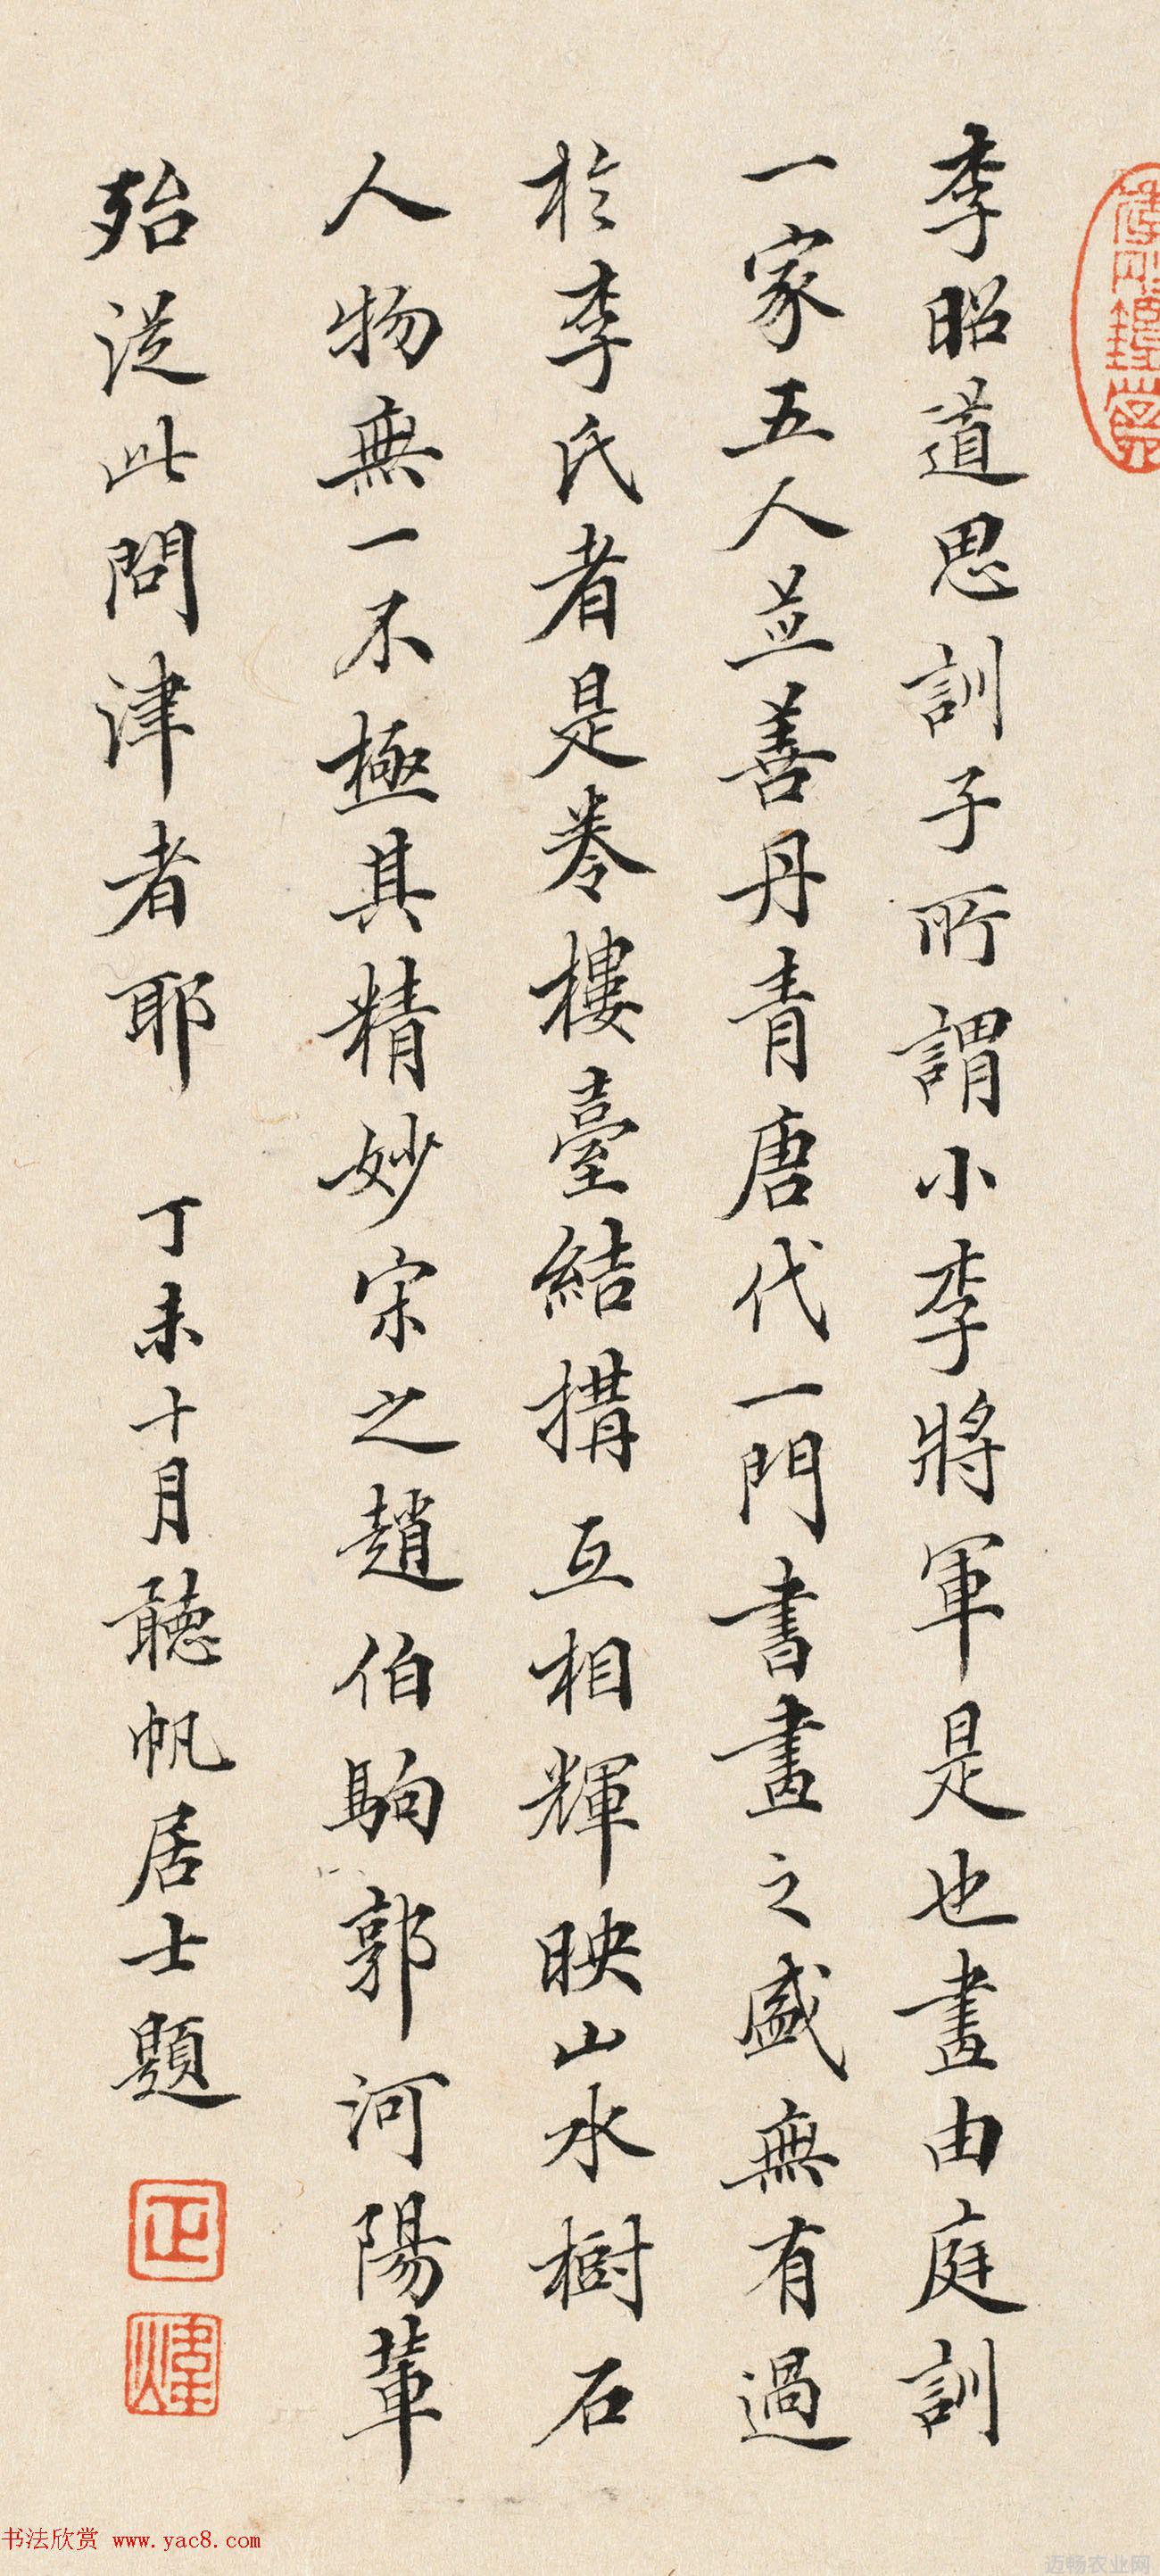 李昭道思訓子所謂小李將軍是也畫由庭訓
一家五人並善丹青唐代一門書畫之盛無有過
於李氏者是卷樓臺結搆互相輝映山水樹石
人物無一不極其精妙宋之趙伯駒郭河陽輩
殆從此問津者耶 丁未十月聽帆居士題
正
煒
书法欣赏 www.yac8.com
迈畅农业网